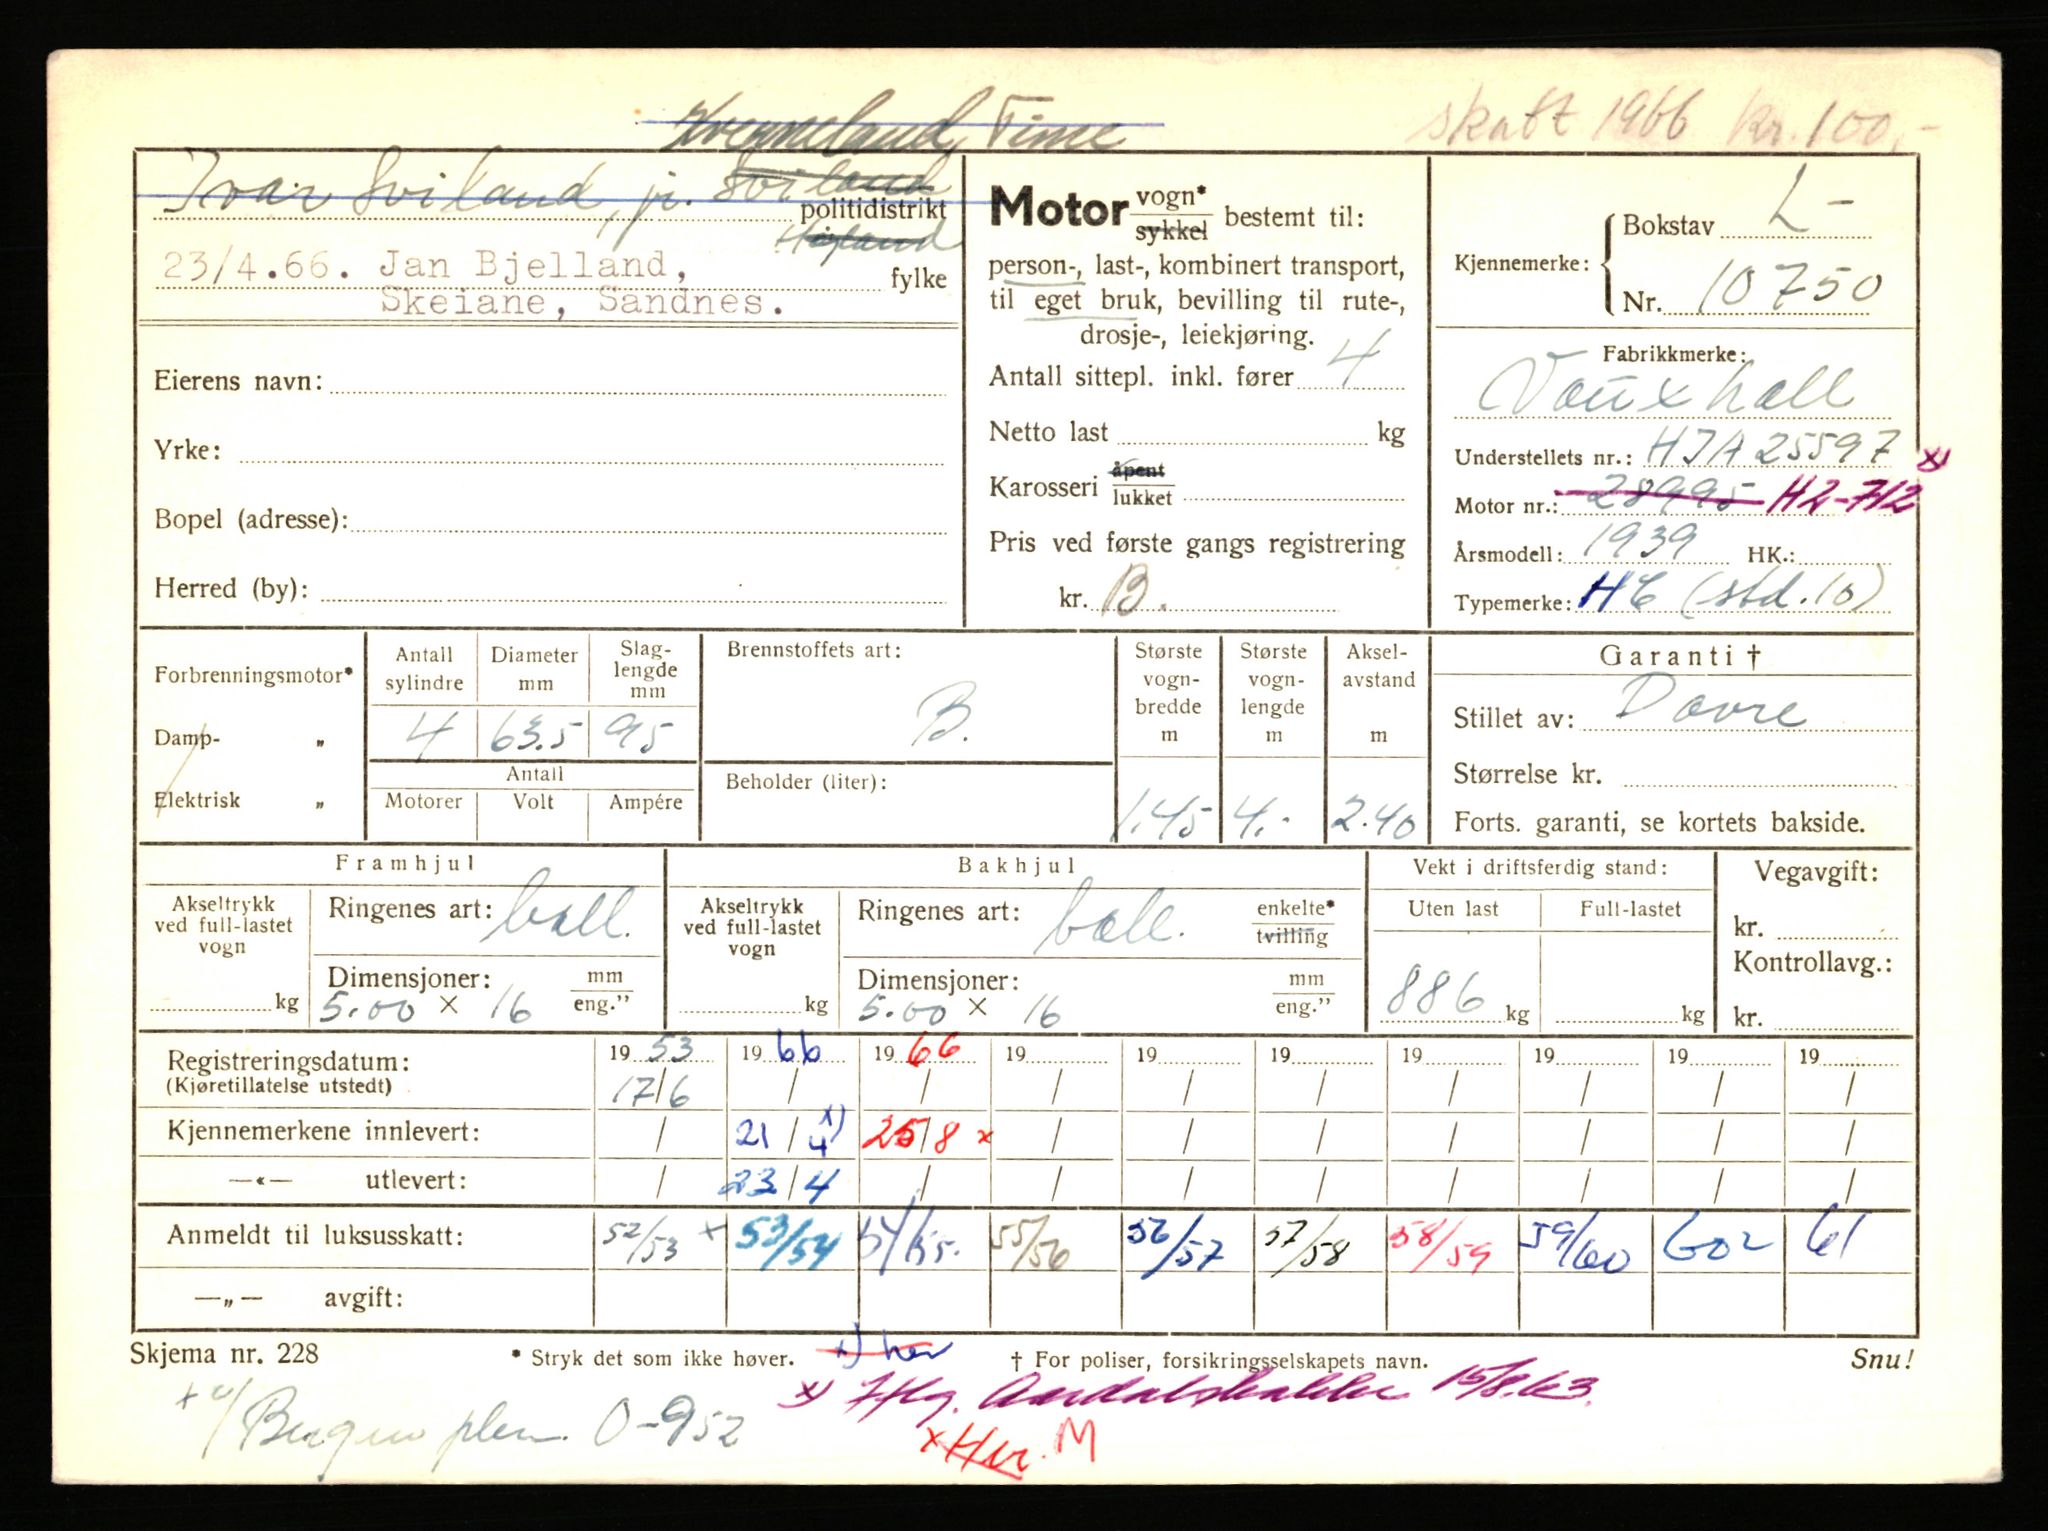 Kverneland, Time
skatt 1966 kr. 100,-
Ivar Sviland, jr. Sviland
politidistrikt
Høyland
23/4.66. Jan Bjelland,
fylke
Skeiane, Sandnes.
Eierens navn:
Yrke:
Bopel (adresse):
Herred (by):
Motor vogn* sykkel bestemt til:
person-, last-, kombinert transport,
til eget bruk, bevilling til rute-,
drosje-, leiekjøring.
Antall sittepl. inkl. fører 4
Netto last kg
Karosseri åpent lukket
Pris ved første gangs registrering
kr. B.
Kjennemerke: Bokstav L-
Nr. 10750
Fabrikkmerke:
Vauxhall
Understellets nr.: HJA 25597 x)
Motor nr.: 28995 H2-712
Årsmodell: 1939 HK.:
Typemerke: H6 (std. 10)
Forbrenningsmotor*
Damp- „
Elektrisk „
Antall sylindre Diameter mm Slag-lengde mm
4 63.5 95
Antall
Motorer Volt Ampére
Brennstoffets art:
B.
Beholder (liter):
Største vogn-bredde m Største vogn-lengde m Aksel-avstand m
1.45 4.- 2.40
Garanti †
Stillet av: Dovre
Størrelse kr.
Forts. garanti, se kortets bakside.
Framhjul
Akseltrykk ved full-lastet vogn
kg
Ringenes art: ball.
Dimensjoner: mm eng.”
5.00 x 16
Bakhjul
Akseltrykk ved full-lastet vogn
kg
Ringenes art: ball. enkelte* tvilling
Dimensjoner: mm eng.”
5.00 x 16
Vekt i driftsferdig stand:
Uten last Full-lastet
886 kg kg
Vegavgift:
kr.
Kontrollavg.:
kr.
Registreringsdatum: 19 53 19 66 19 66 19 19 19 19 19 19 19
(Kjøretillatelse utstedt) 17/6 / / / / / / / / /
Kjennemerkene innlevert: / 21/4 x) 25/8 x / / / / / / /
—«— utlevert: / 23/4 / / / / / / / /
Anmeldt til luksusskatt: 52/53 x 53/54 54/55. 55/56 56/57 57/58 58/59 59/60 602 61
—„— avgift:
Skjema nr. 228 * Stryk det som ikke høver. x) her † For poliser, forsikringsselskapets navn. Snu!
15/8.63.
O-952
x Hvr. M